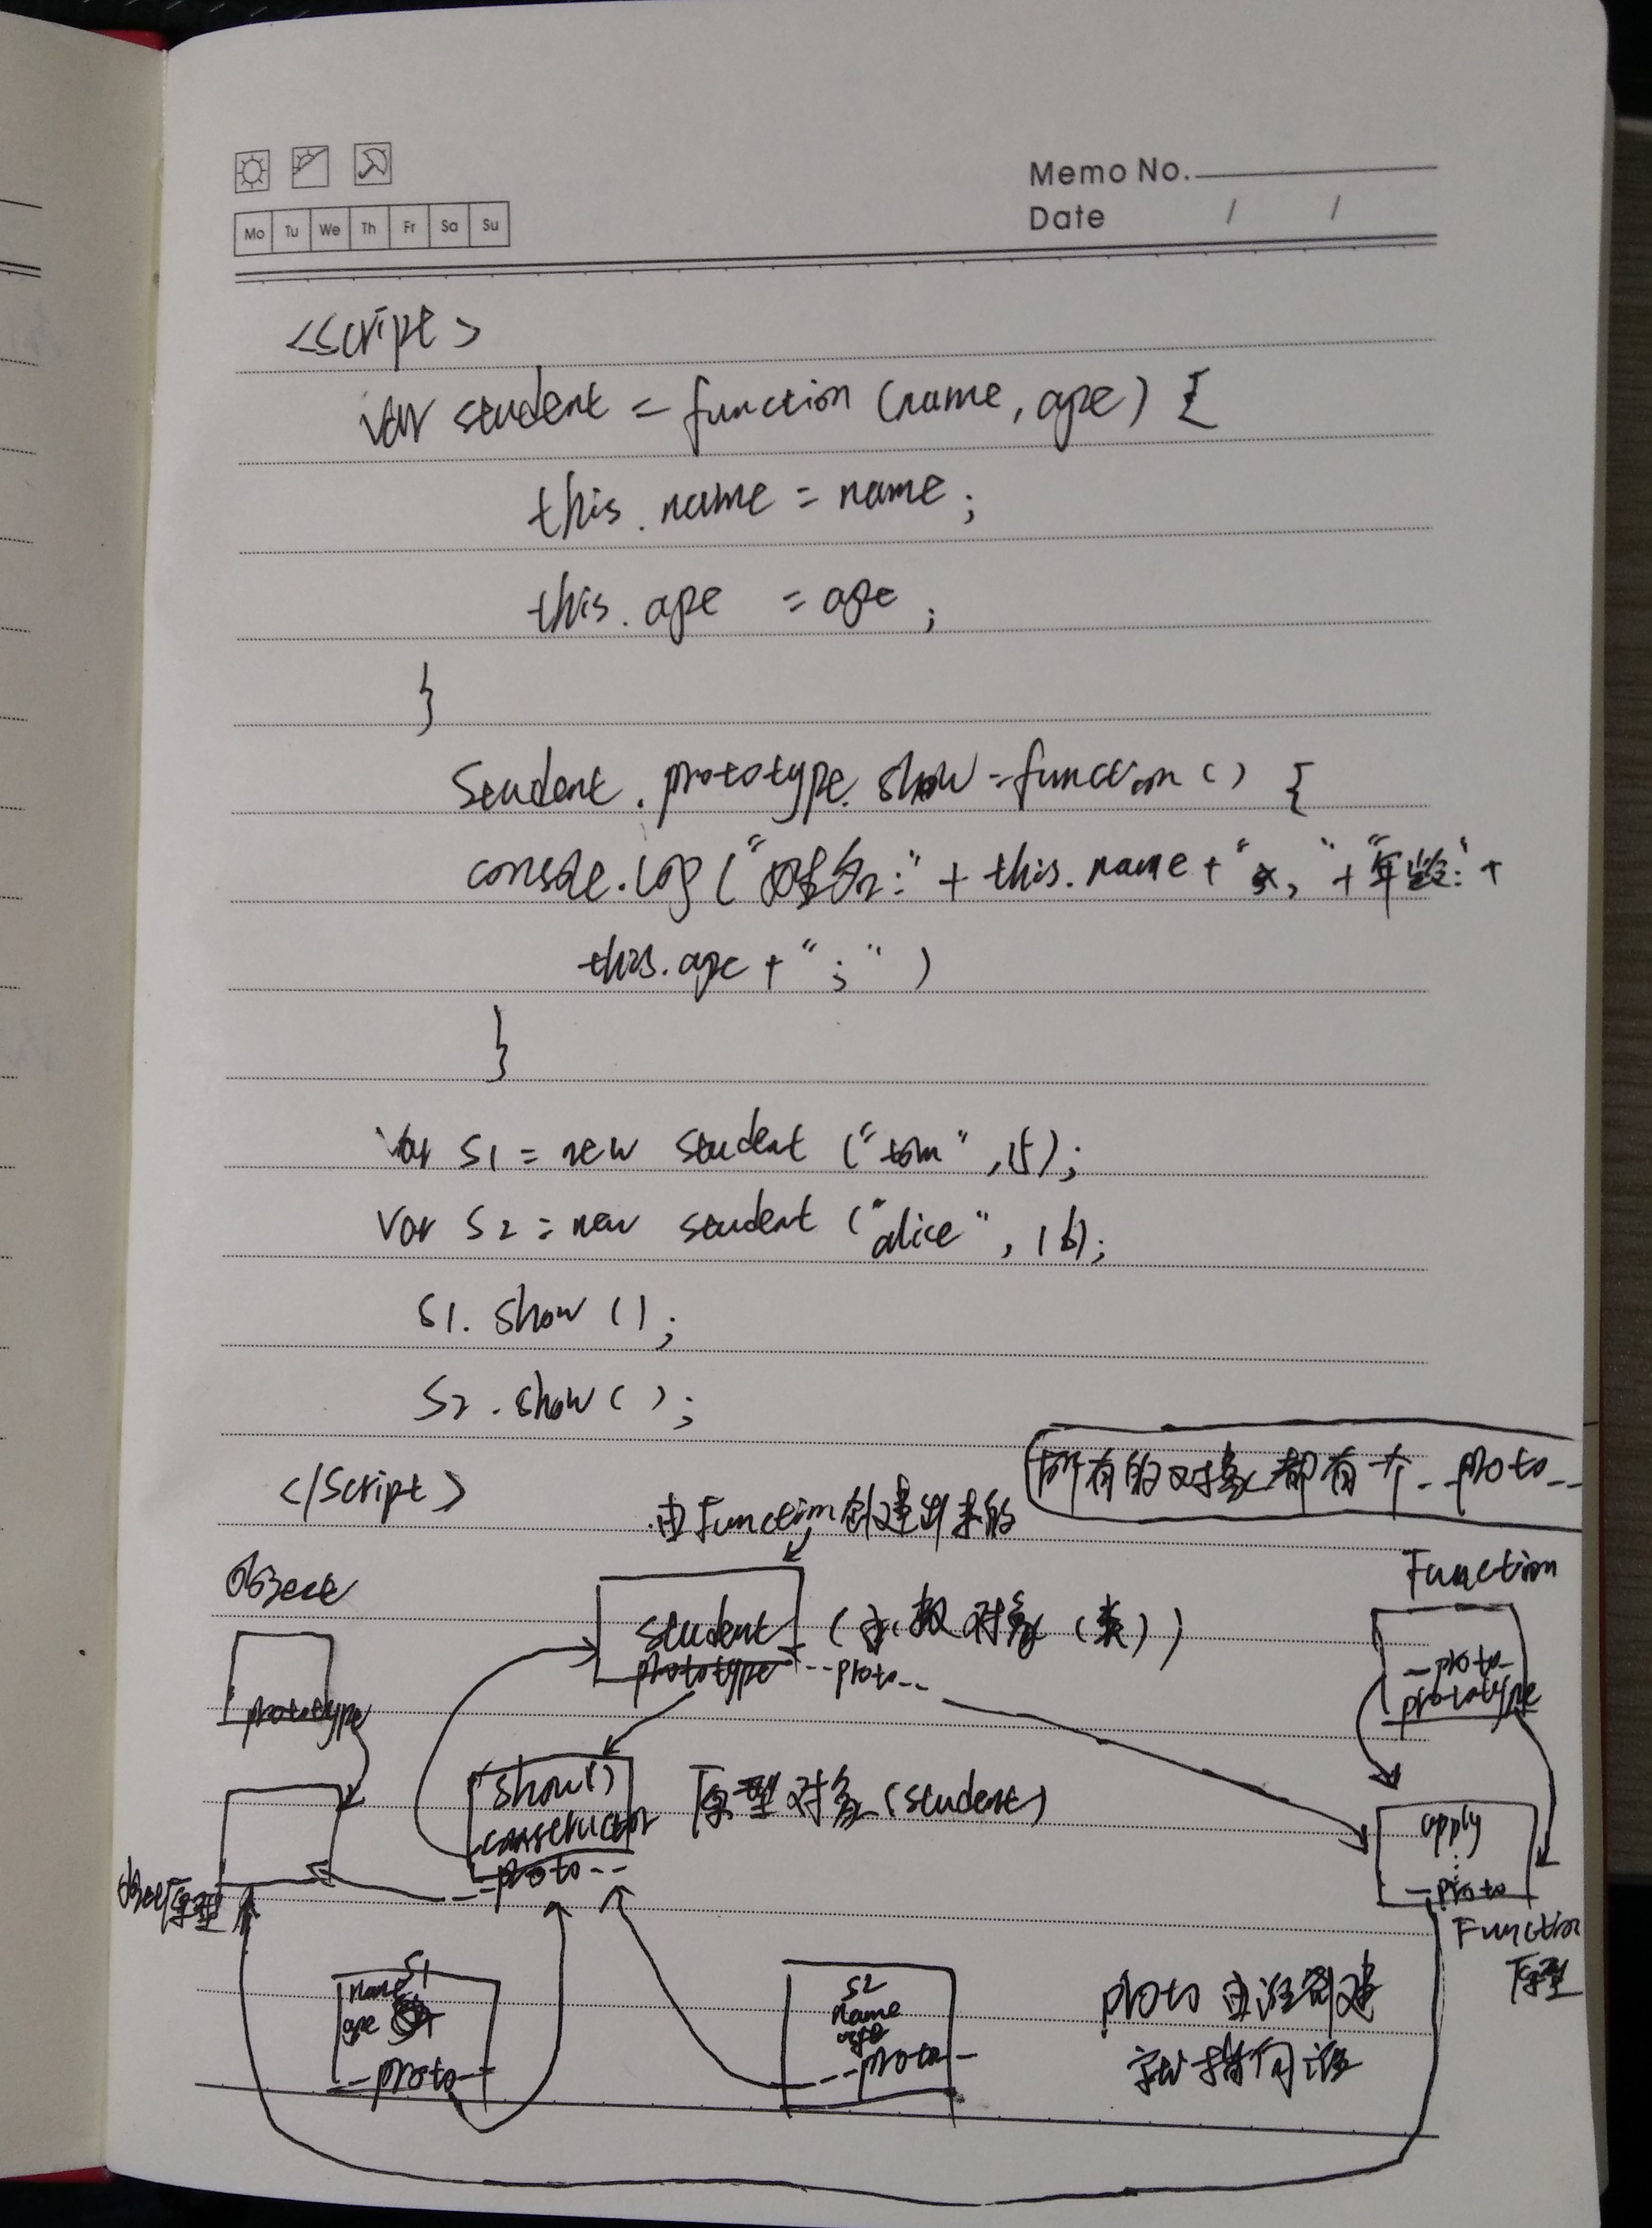 Memo No.
Date / /
Mo Tu We Th Fr Sa Su
<script>
var student = function (name, age) {
this.name = name;
this.age = age;
}
Student.prototype.show = function () {
console.log("姓名:" + this.name + "," + "年龄:" +
this.age + ";")
}
var s1 = new student ("tom", 15);
var s2 = new student ("alice", 16);
s1.show();
s2.show();
</script>
所有的对象都有个__proto__
由Function创建出来的
Object
Function
student
prototype
__proto__
(函数对象(类))
__proto__
prototype
prototype
show()
constructor
__proto__
原型对象(student)
apply
⋮
__proto__
Object原型
Function
原型
s1
name
age
__proto__
s2
name
age
__proto__
proto由谁创建
就指向谁